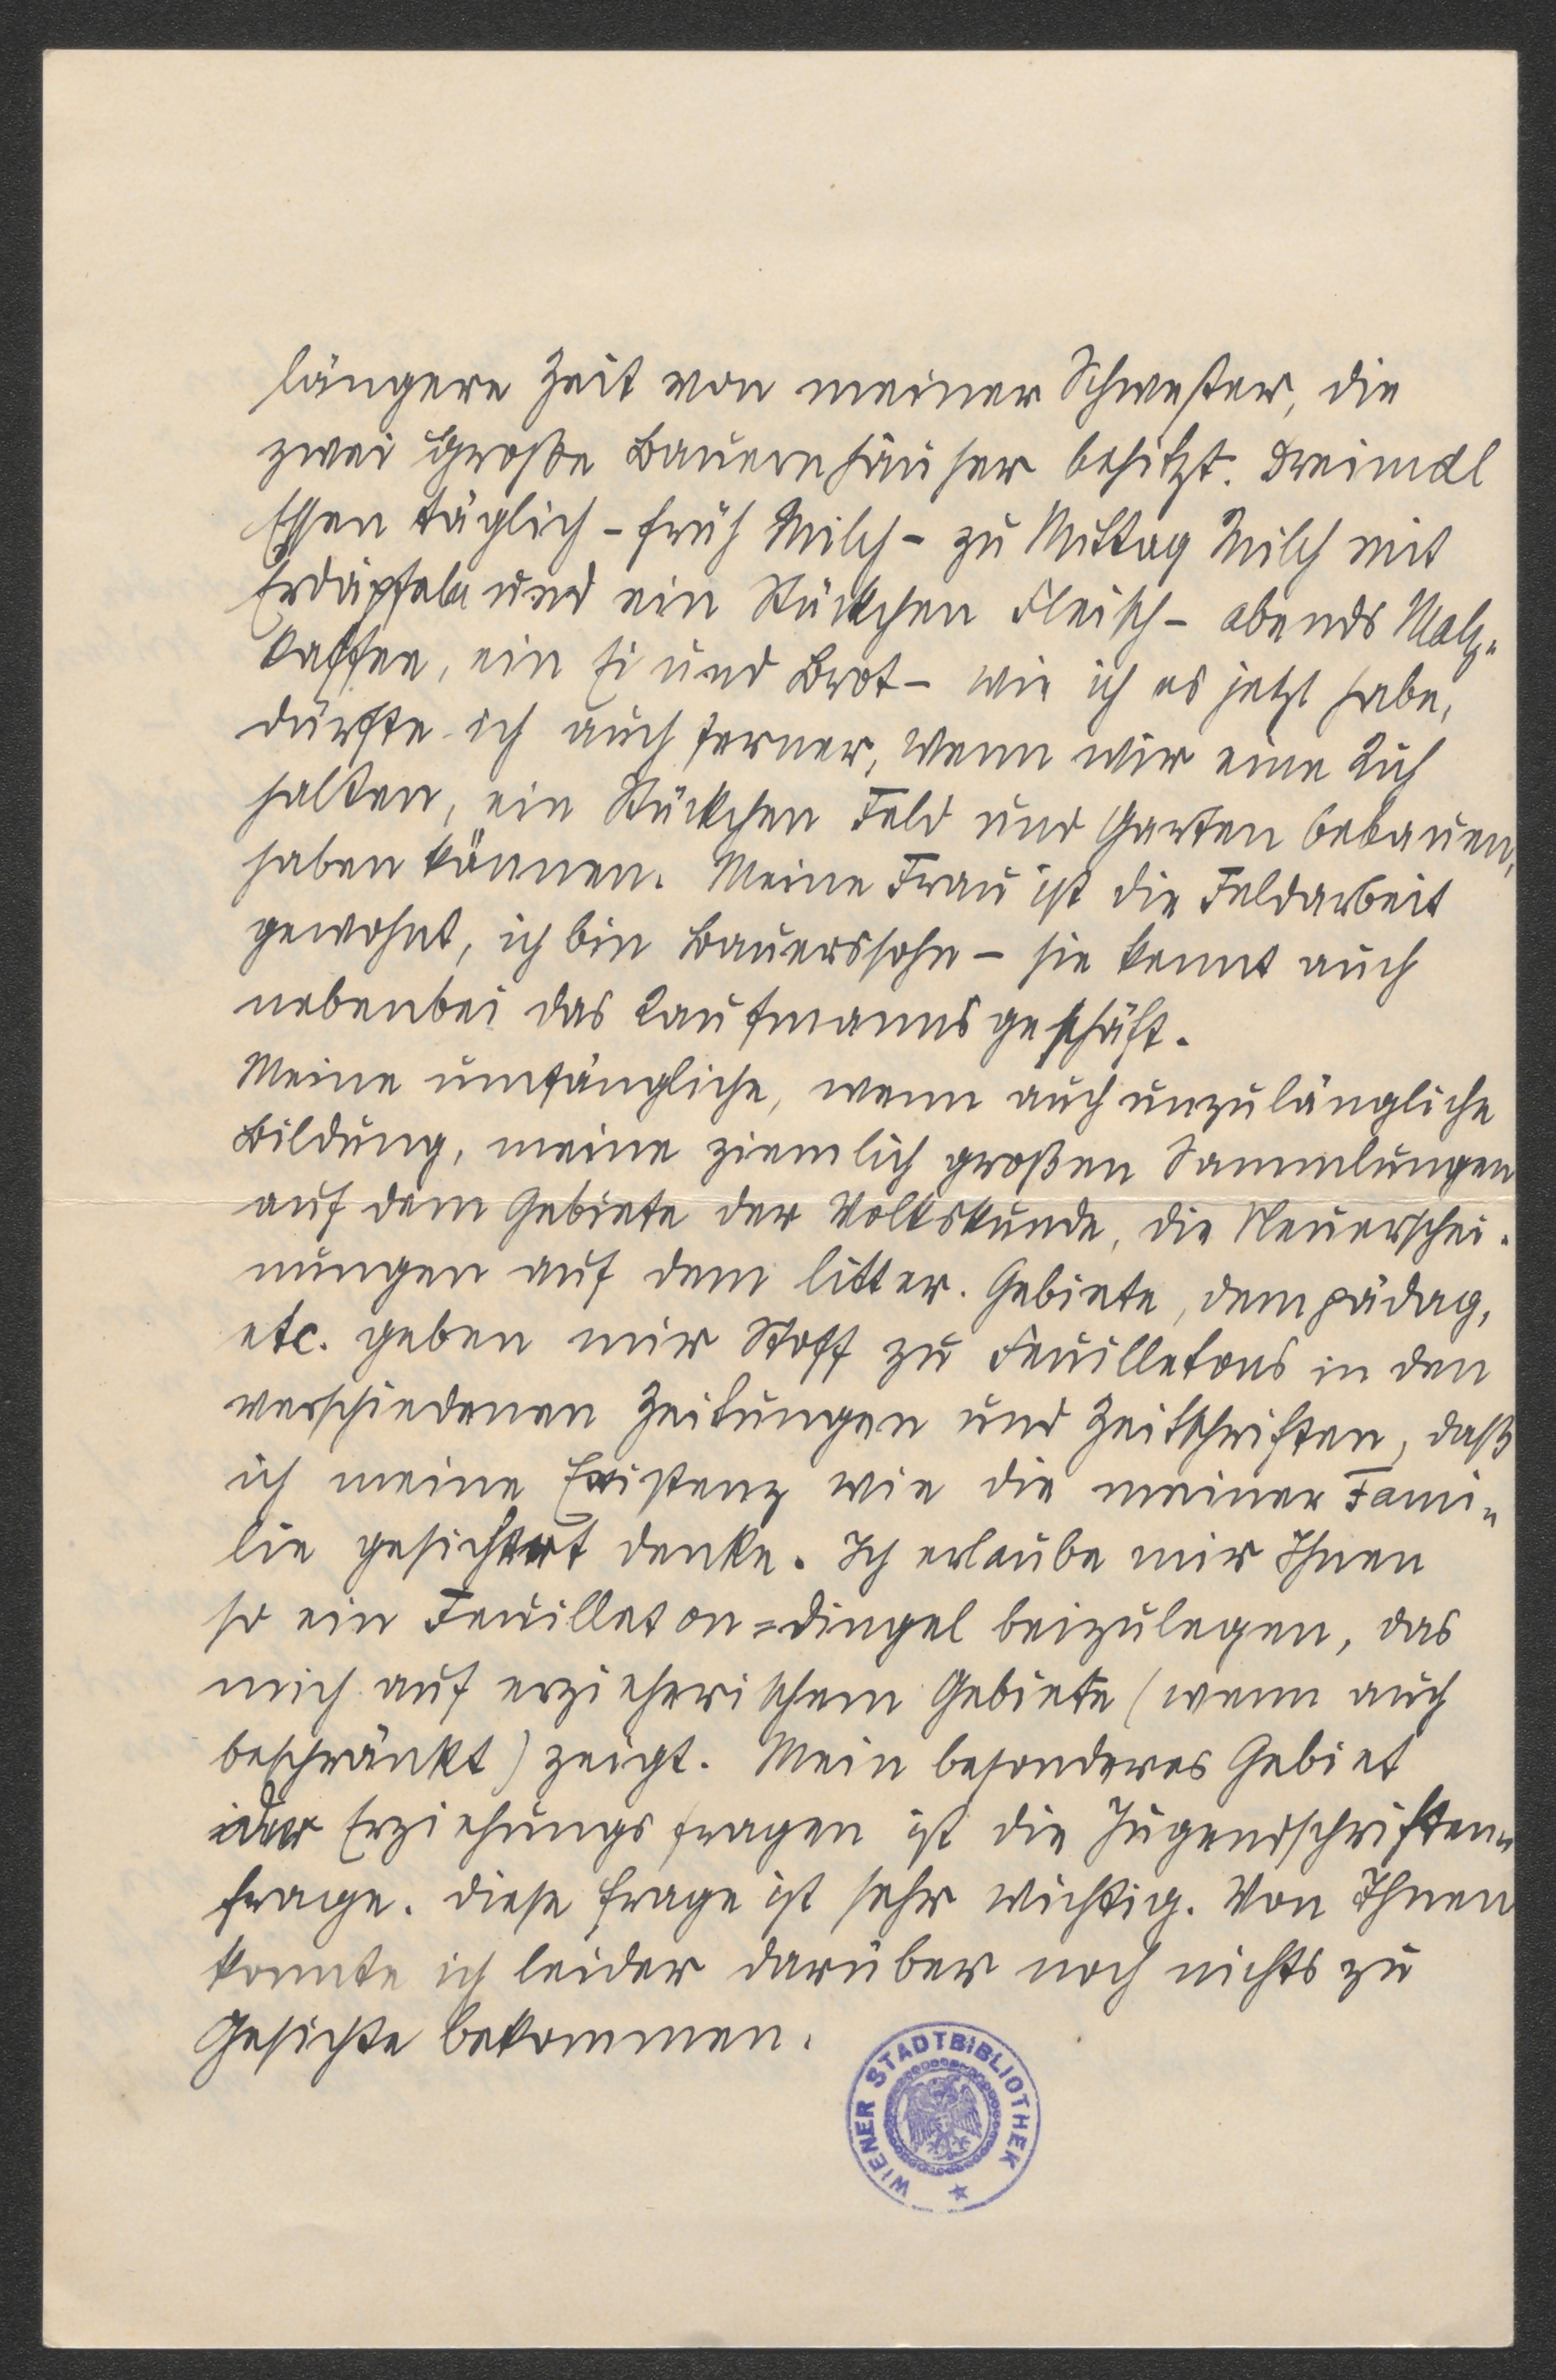 längere Zeit von meiner Schwester, die
zwei große Bauernhäuser besitzt. Dreimal
Essen täglich – früh Milch – zu Mittag Milch mit
Erdäpfeln und ein Stückchen Fleisch – abends Malz-
kaffee, ein Ei und Brot – wie ich es jetzt habe,
dürfte ich auch ferner, wenn wir eine Kuh
halten, ein Stückchen Feld und Garten bebauen,
haben können. Meine Frau ist die Feldarbeit
gewohnt, ich bin Bauerssohn – sie kennt auch
nebenbei das Kaufmannsgeschäft.
Meine umfängliche, wenn auch unzulängliche
Bildung, meine ziemlich großen Sammlungen
auf dem Gebiete der Volkskunde, die Neuerschei-
nungen auf dem litter. Gebiete, dem pädag,
etc. geben mir Stoff zu Feuilletons in den
verschiedenen Zeitungen und Zeitschriften, daß
ich meine Existenz wie die meiner Fami-
lie gesichert denke. Ich erlaube mir Ihnen
so ein Feuilleton=dingel beizulegen, das
mich auf erzieherischem Gebiete (wenn auch
beschränkt) zeigt. Mein besonderes Gebiet
der Erziehungsfragen ist die Jugendschriften-
frage. Diese Frage ist sehr wichtig. Von Ihnen
konnte ich leider darüber noch nichts zu
Gesichte bekommen.
WIENER STADTBIBLIOTHEK